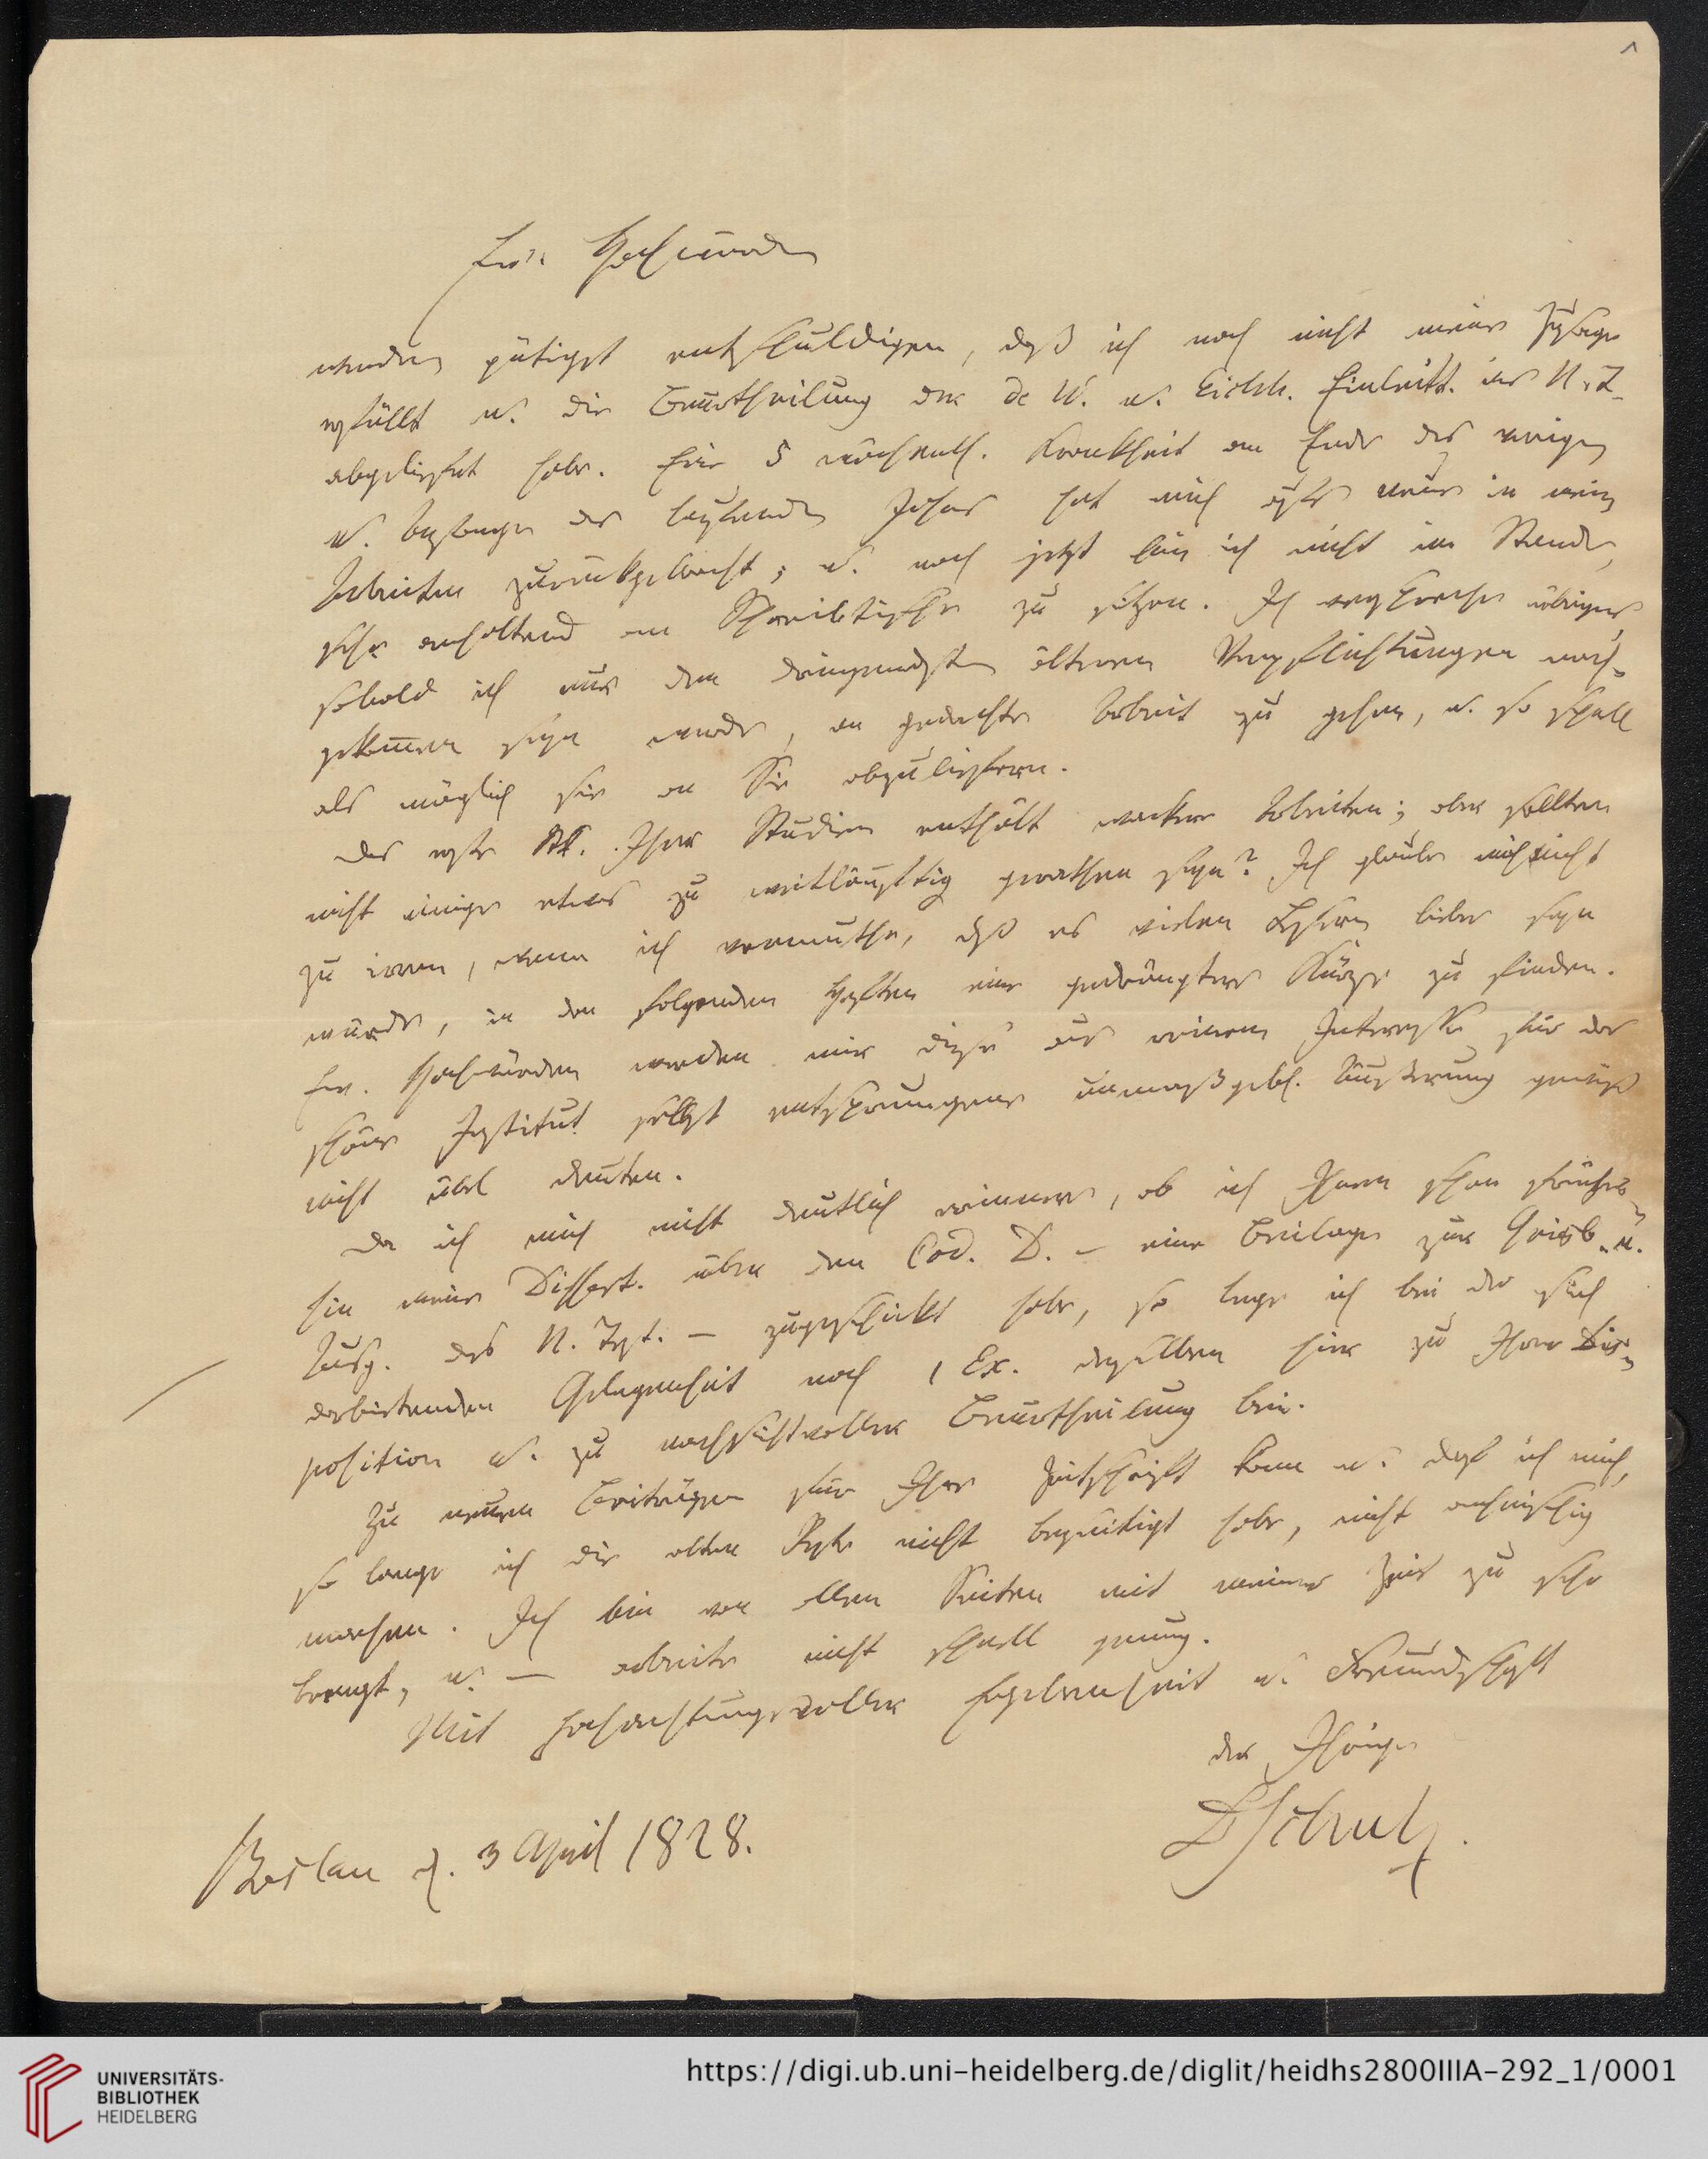 1
Ew. Hochwürden
werden gütigst entschuldigen, daß ich noch nicht meine Zusage
erfüllt u. die Beurtheilung der de W. u. Eichh. Einleitt. ins N. T.
abgeliefert habe. Eine 5 wöchentl. Krankheit am Ende des vorigen
u. Anfange des laufenden Jahres hat mich sehr in meinen
Arbeiten zurückgebracht; u. noch jetzt bin ich nicht im Stande,
sehr anhaltend am Schreibtische zu sitzen. Ich verspreche übrigens
sobald ich nur den dringendsten älteren Verpflichtungen nach-
gekommen seyn werde, an gedachte Arbeit zu gehen, u. so schnell
als möglich sie an Sie abzuliefern.
Das erste St. Ihrer Studien enthält wackere Arbeiten; aber sollten
nicht einige etwas zu weitläuftig gerathen seyn? Ich glaube mich nicht
zu irren, wenn ich vermuthe, daß es vielen Lesern lieber seyn
würde, in den folgenden Heften eine gedrängtere Kürze zu finden.
Ew. Hochwürden werden mir diese aus reinem Interesse für das
schöne Institut selbst entsprungene unmaßgebl. Äußerung gewiß
nicht übel deuten.
Da ich mich nicht deutlich erinnere, ob ich Ihnen schon früher-
hin meine Dissert. über den Cod. D. – eine Beilage zur Griesb. n.
Ausg. des N. Test. – zugeschickt habe, so lege ich bei der sich
darbietenden Gelegenheit noch 1 Ex. derselben hier zu Ihrer Dis-
position u. zu nachsichtsvoller Beurtheilung bei.
Zu neuen Beiträgen für Ihre Zeitschrift kann u. darf ich mich,
so lange ich die alten Reste nicht beseitigt habe, nicht anheischig
machen. Ich bin von allen Seiten mit meiner Zeit zu sehr
beengt, u. – arbeite nicht schnell genug.
Mit hochachtungsvoller Ergebenheit u. Freundschaft
der Ihrige
DSchulz.
Breslau d. 3 April 1828.
UNIVERSITÄTS-
BIBLIOTHEK
HEIDELBERG
https://digi.ub.uni-heidelberg.de/diglit/heidhs2800IIIA-292_1/0001